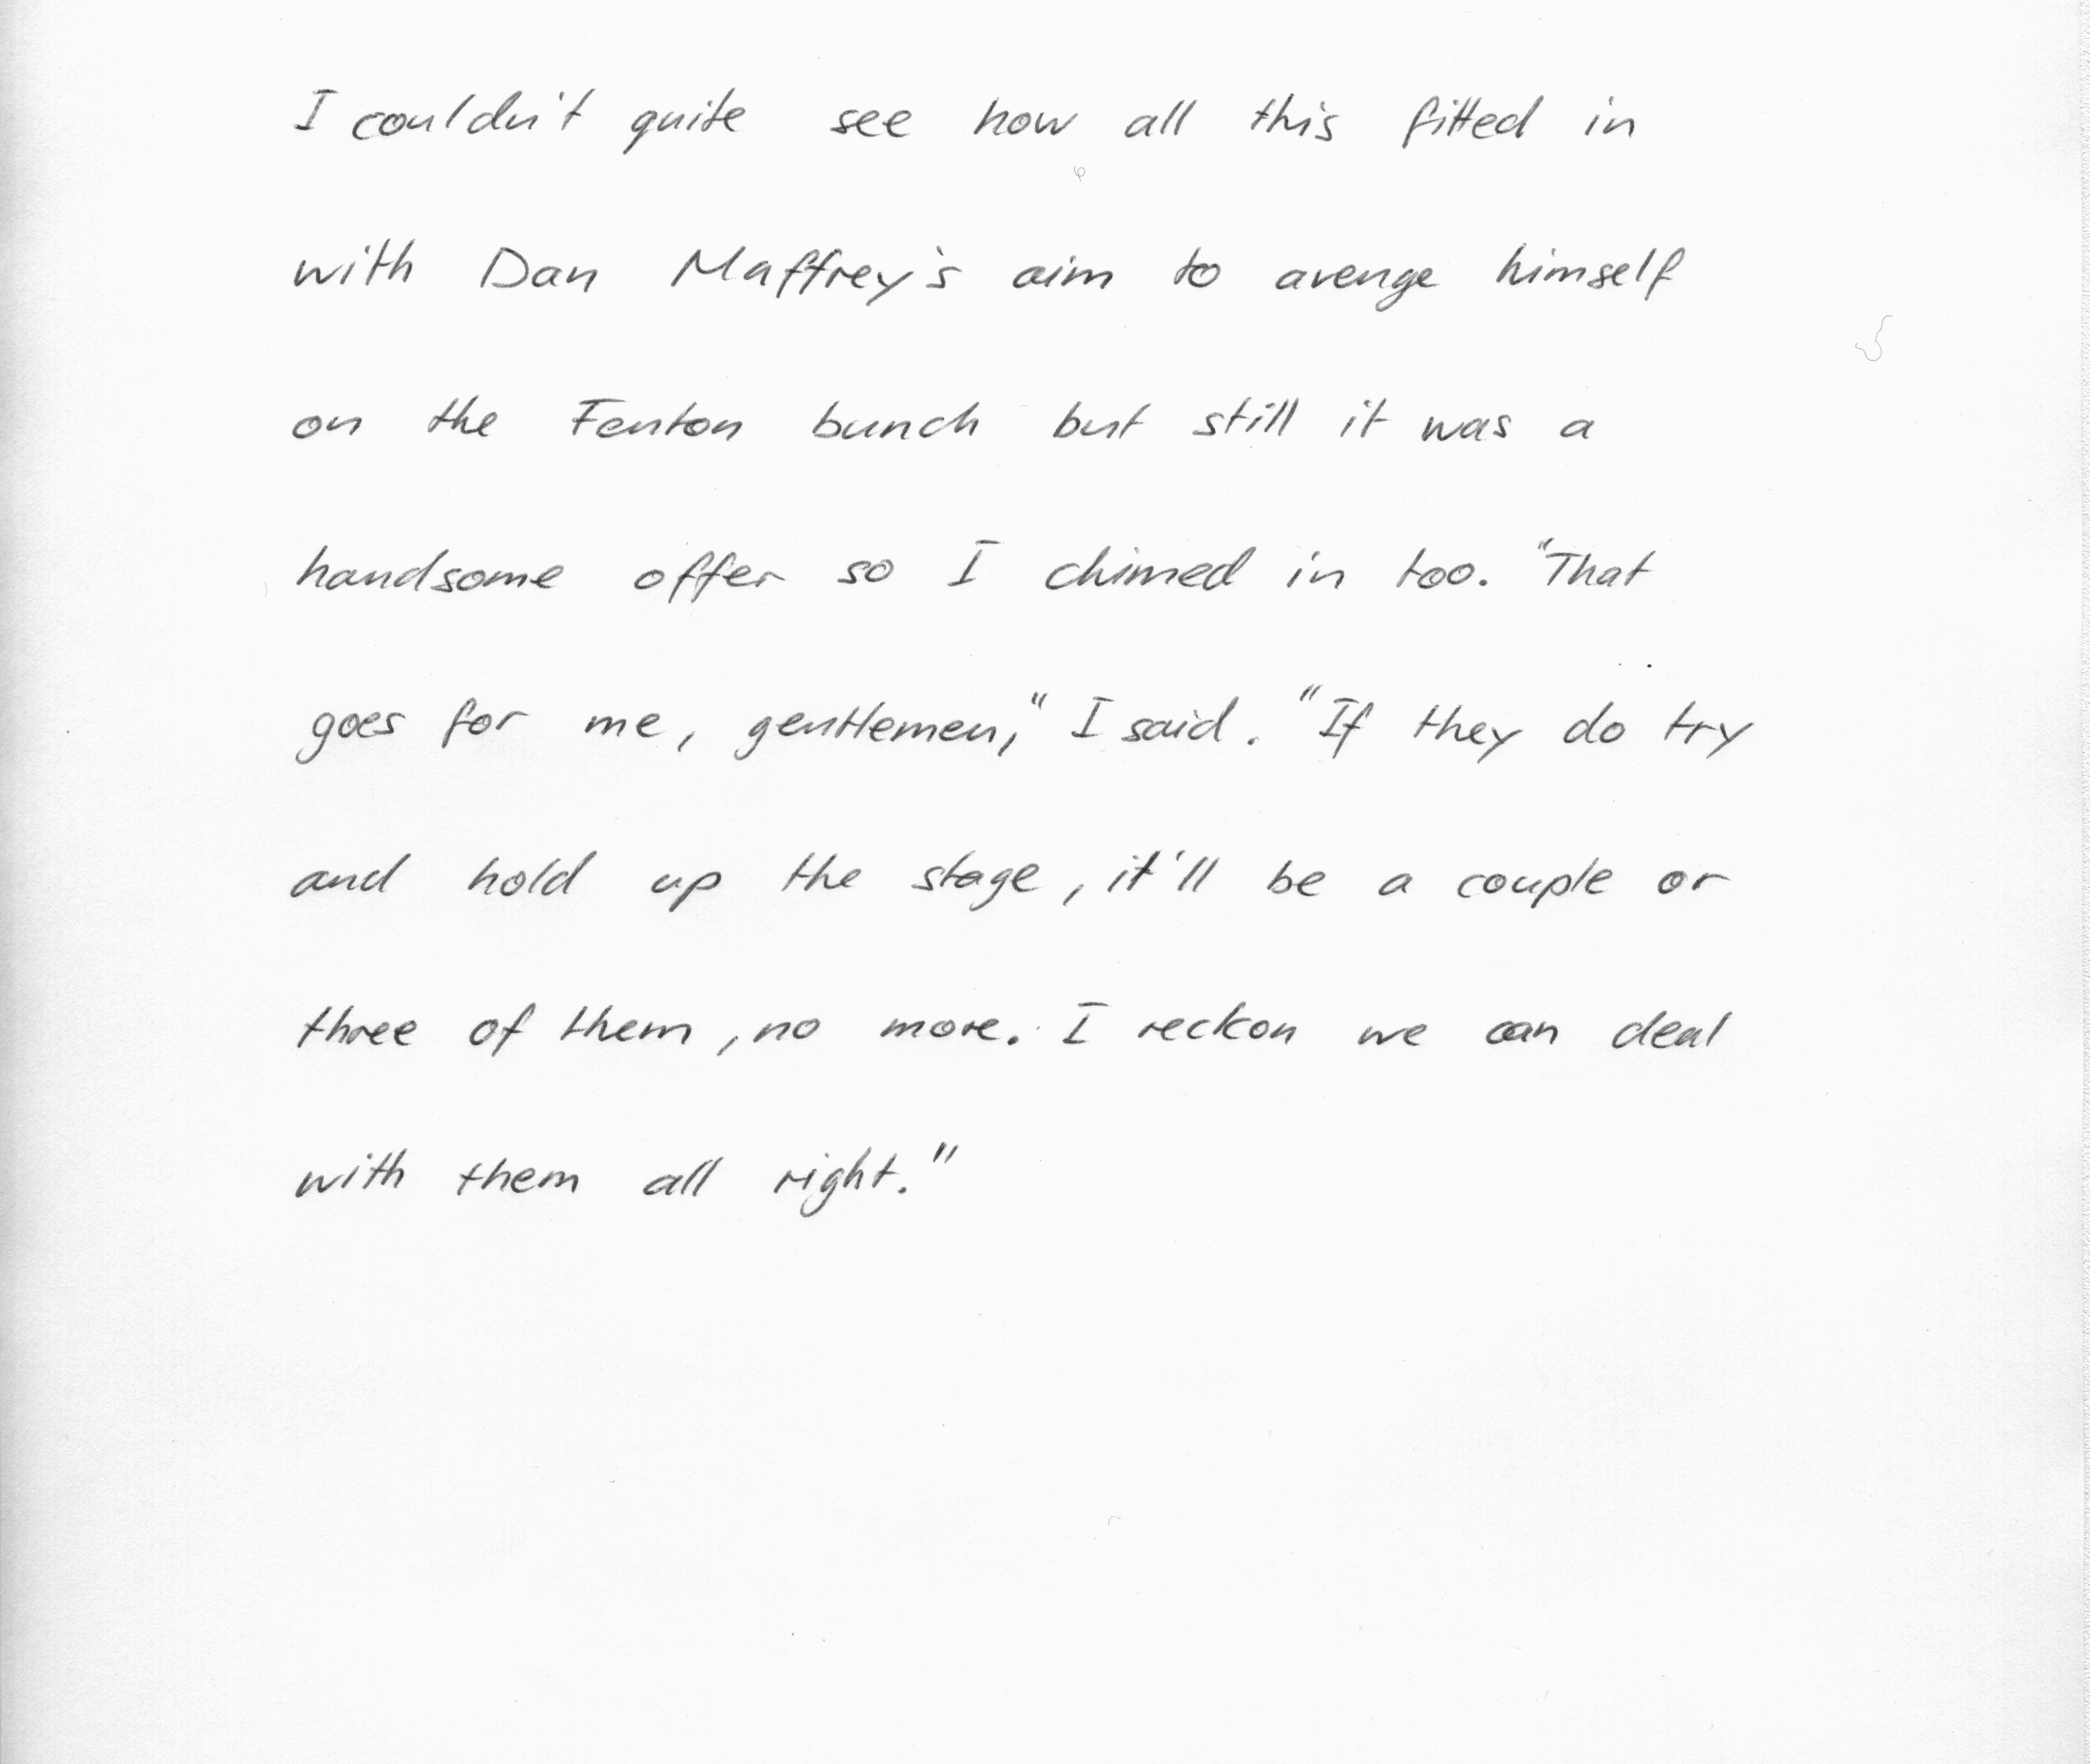 I couldn't quite see how all this fitted in
with Dan Maffrey's aim to avenge himself
on the Fenton bunch but still it was a
handsome offer so I chimed in too. "That
goes for me, gentlemen," I said. "If they do try
and hold up the stage, it'll be a couple or
three of them, no more. I reckon we can deal
with them all right."